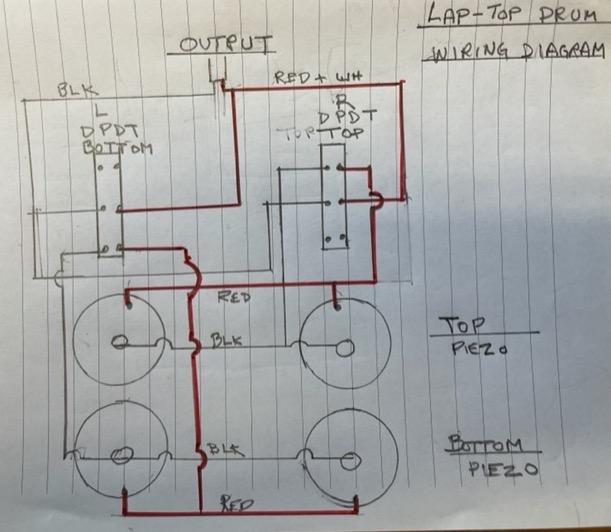 LAP-TOP DRUM
WIRING DIAGRAM
OUTPUT
BLK
RED + WH
L
DPDT
BOTTOM
R
DPDT
TOP TOP
RED
BLK
TOP
PIEZO
BLK
BOTTOM
PIEZO
RED